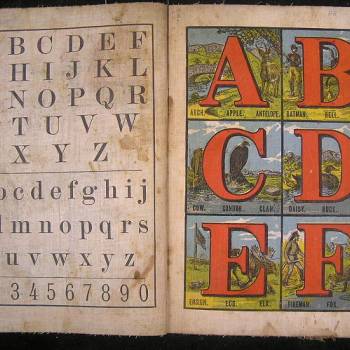 B C D E F
H I J K L
N O P Q R
T U V W
X Y Z
c d e f g h i j
m n o p q r s
u v w x y z
3 4 5 6 7 8 9 0
A B
ARCH. APPLE. ANTELOPE. BATMAN. BULL.
C D
COW. CONDOR. CLAM. DAISY. DUCK.
E F
ENSIGN. EGG. ELK. FIREMAN. FOX.